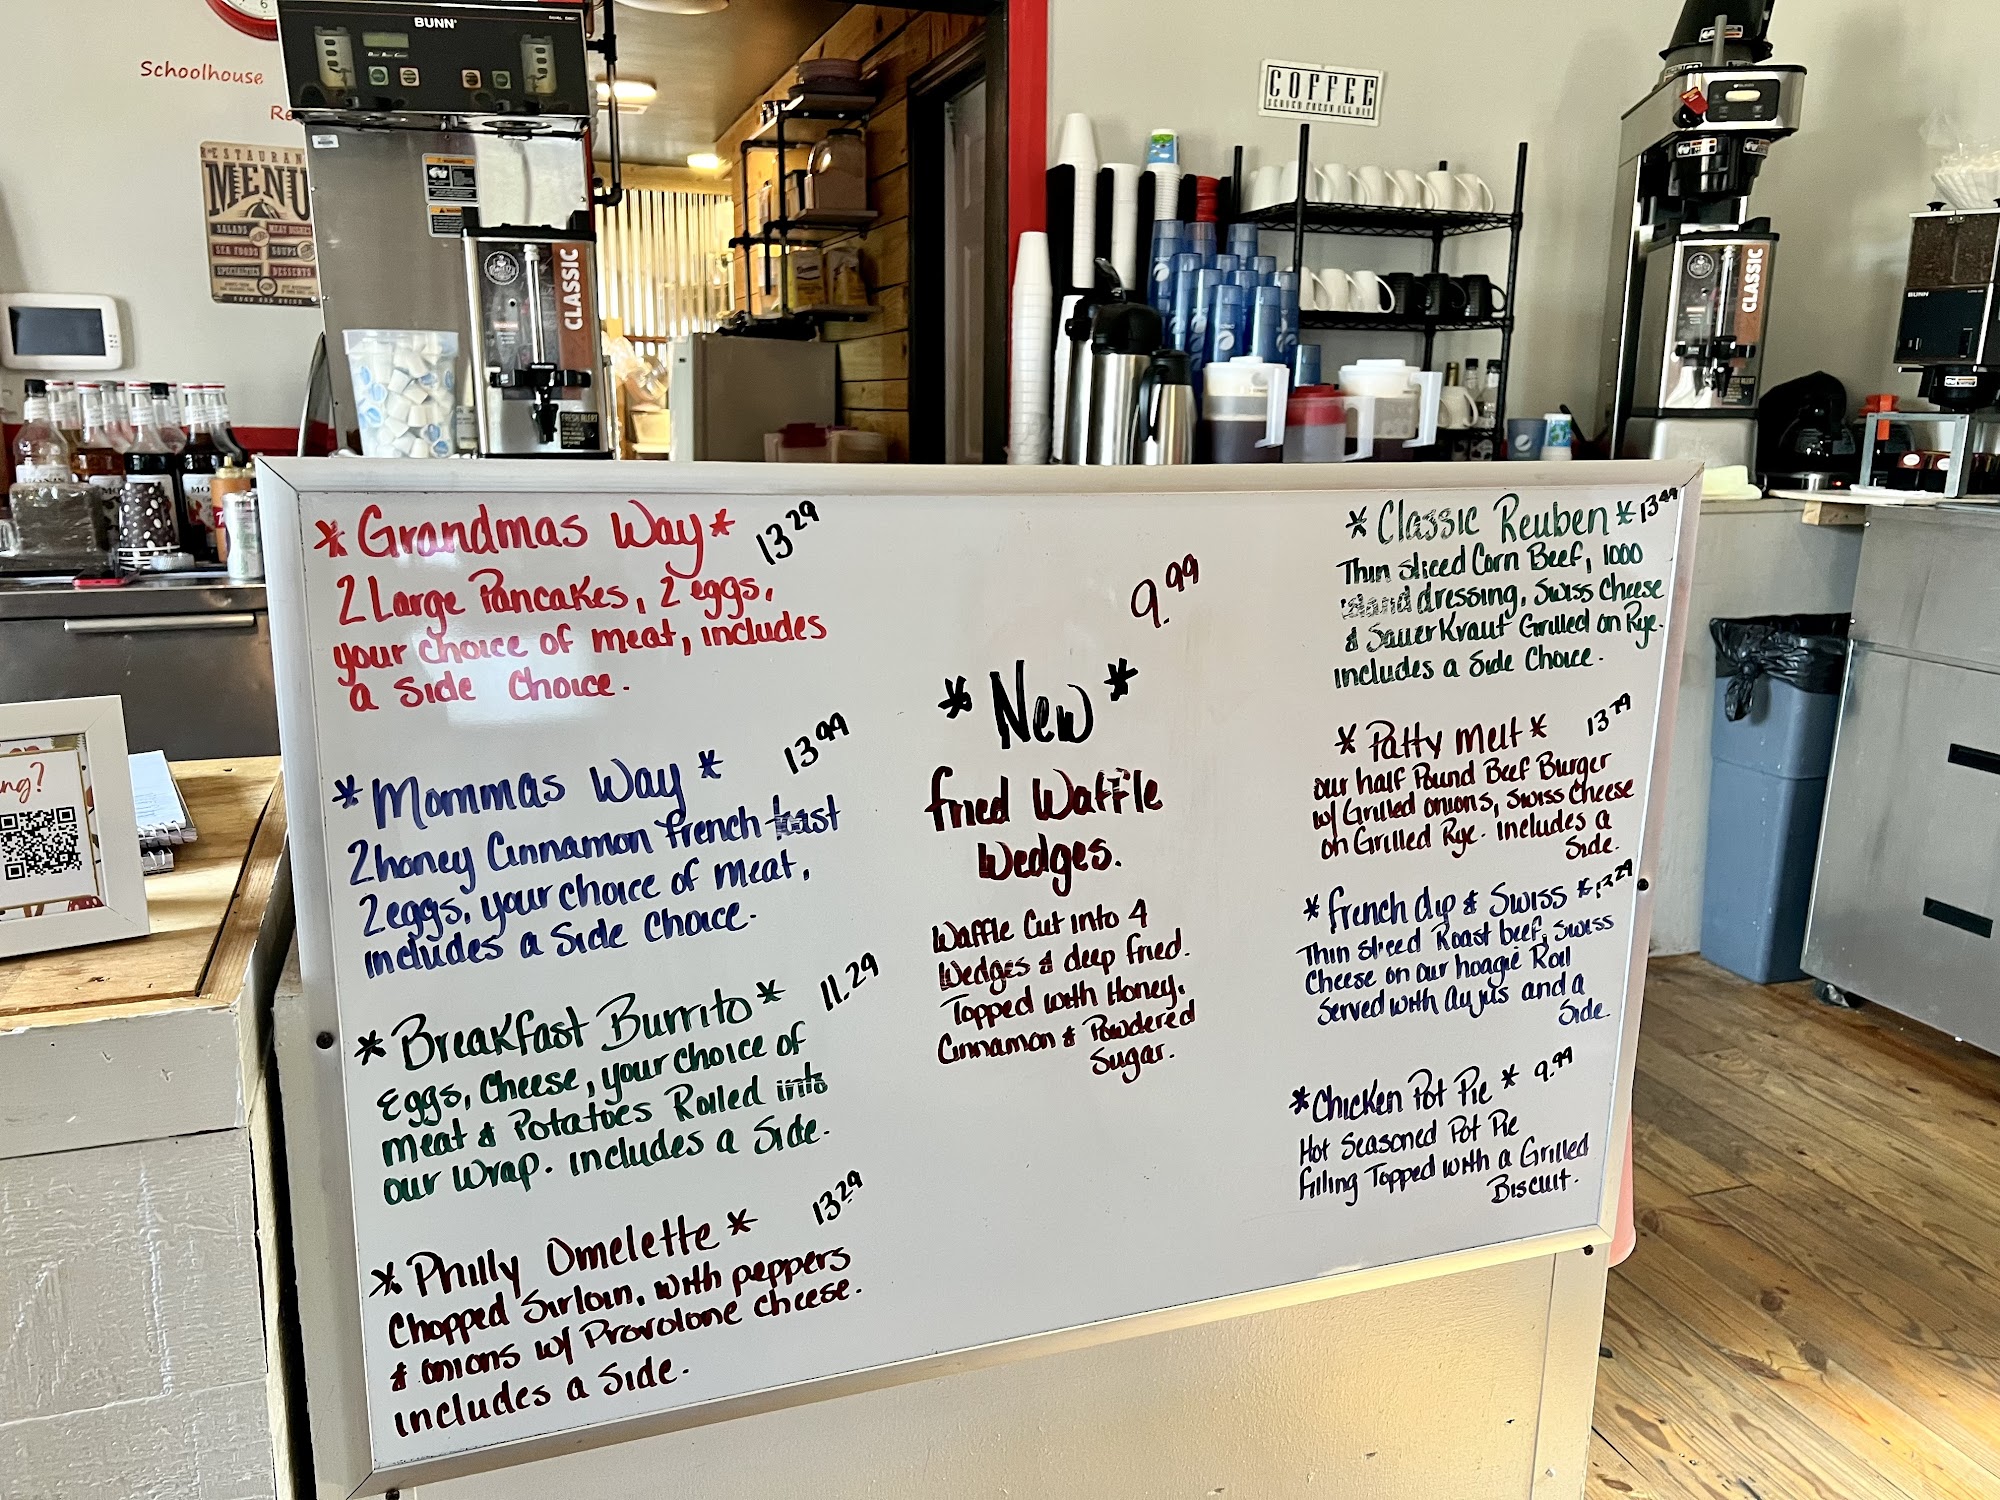 BUNN
Schoolhouse
Re
RESTAURANT
MENU
SALADS
MEAT DISHES
SEA FOODS
SOUPS
SPECIALTIES
DESSERTS
CLASSIC
COFFEE
SERVED FRESH ALL DAY
CLASSIC
BUNN
ng?
*Grandmas Way* 13.29
2 Large Pancakes, 2 eggs,
your choice of meat, includes
a Side Choice.
*Mommas Way* 13.99
2 honey Cinnamon French toast
2 eggs, your choice of meat,
includes a Side Choice.
*Breakfast Burrito* 11.29
Eggs, Cheese, your choice of
meat & Potatoes Rolled into
our Wrap. includes a Side.
*Philly Omelette* 13.29
Chopped Sirloin, with peppers
& onions w/ Provolone cheese.
includes a Side.
9.99
*New*
fried Waffle
Wedges.
Waffle Cut into 4
Wedges & deep fried.
Topped with Honey,
Cinnamon & Powdered
Sugar.
*Classic Reuben* 13.49
Thin sliced Corn Beef, 1000
island dressing, Swiss Cheese
& SauerKraut Grilled on Rye.
includes a Side Choice.
*Patty Melt* 13.79
our half Pound Beef Burger
w/ Grilled onions, Swiss Cheese
on Grilled Rye. includes a
Side.
*french dip & Swiss* 13.29
Thin sliced Roast beef, Swiss
Cheese on our hoagie Roll
Served with Aujus and a
Side.
*Chicken Pot Pie* 9.99
Hot Seasoned Pot Pie
filling Topped with a Grilled
Biscuit.